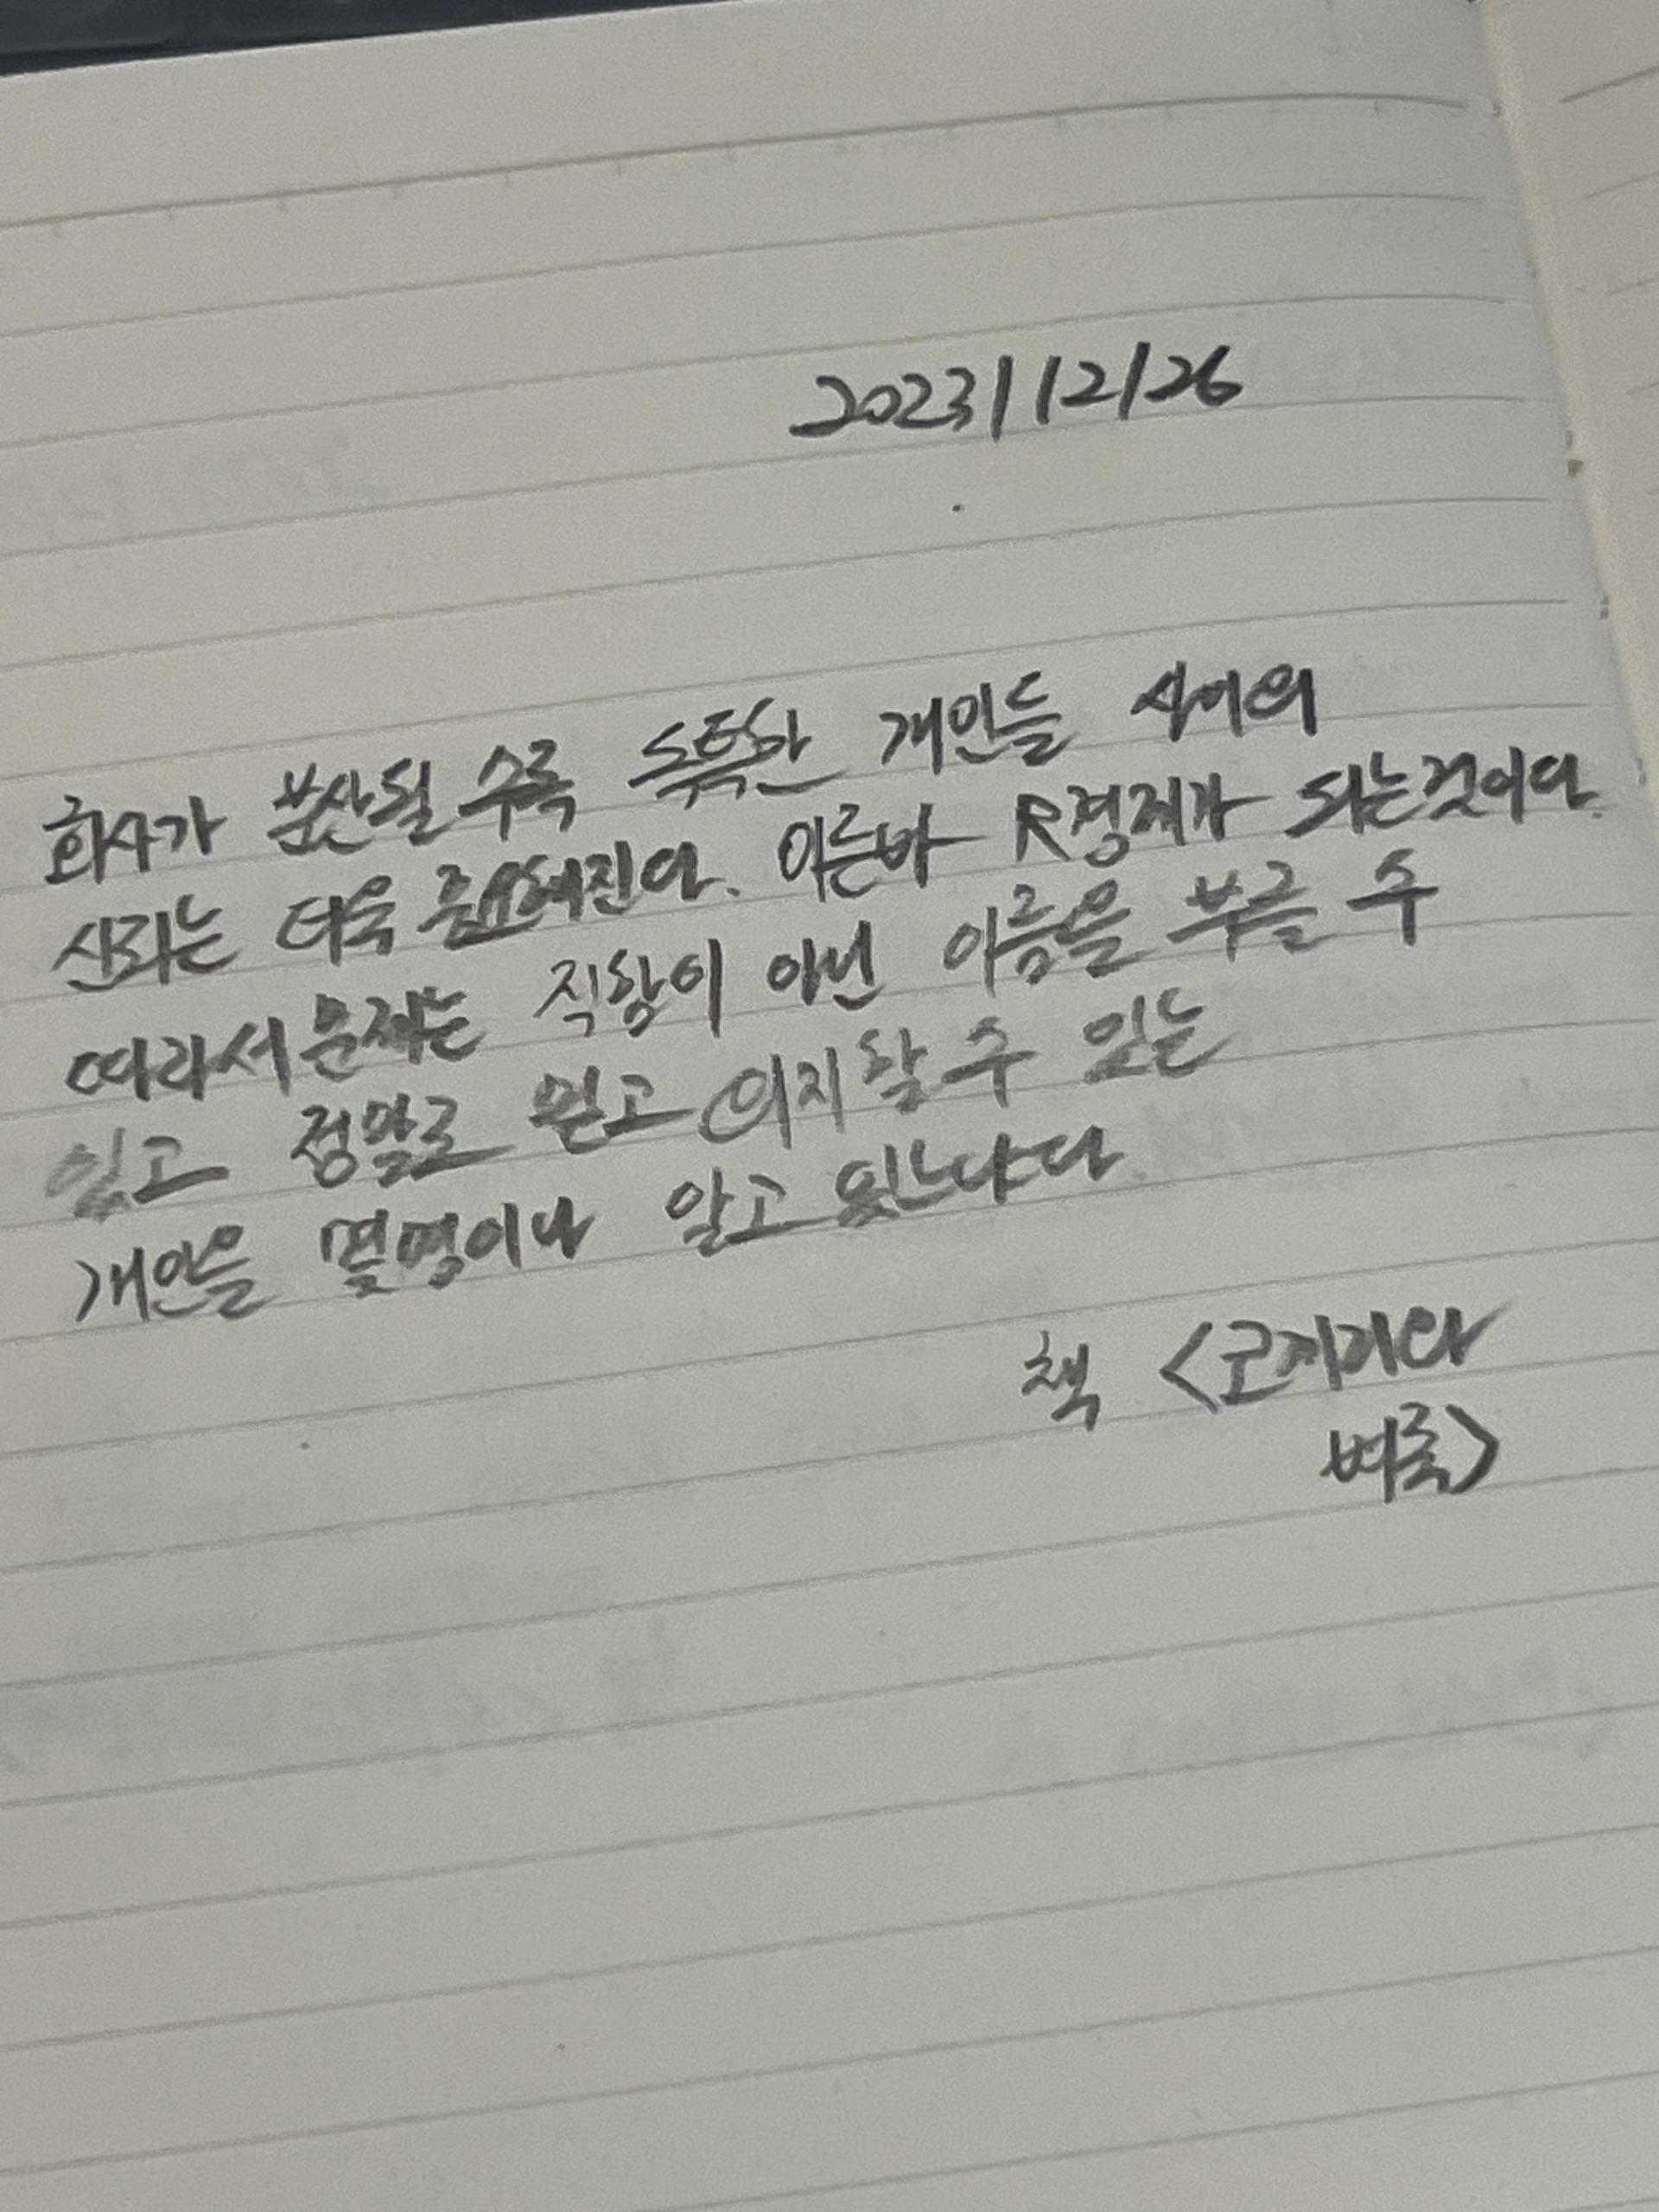 2023/12/26
회사가 분산될 수록 독특한 개인들 사이의
신뢰는 더욱 중요해진다. 이른바 R경제가 되는것이다.
따라서 문제는 직함이 아닌 이름을 부를 수
있고 정말로 믿고 의지할 수 있는
개인을 몇명이나 알고 있느냐다
책 <코끼리와
벼룩>